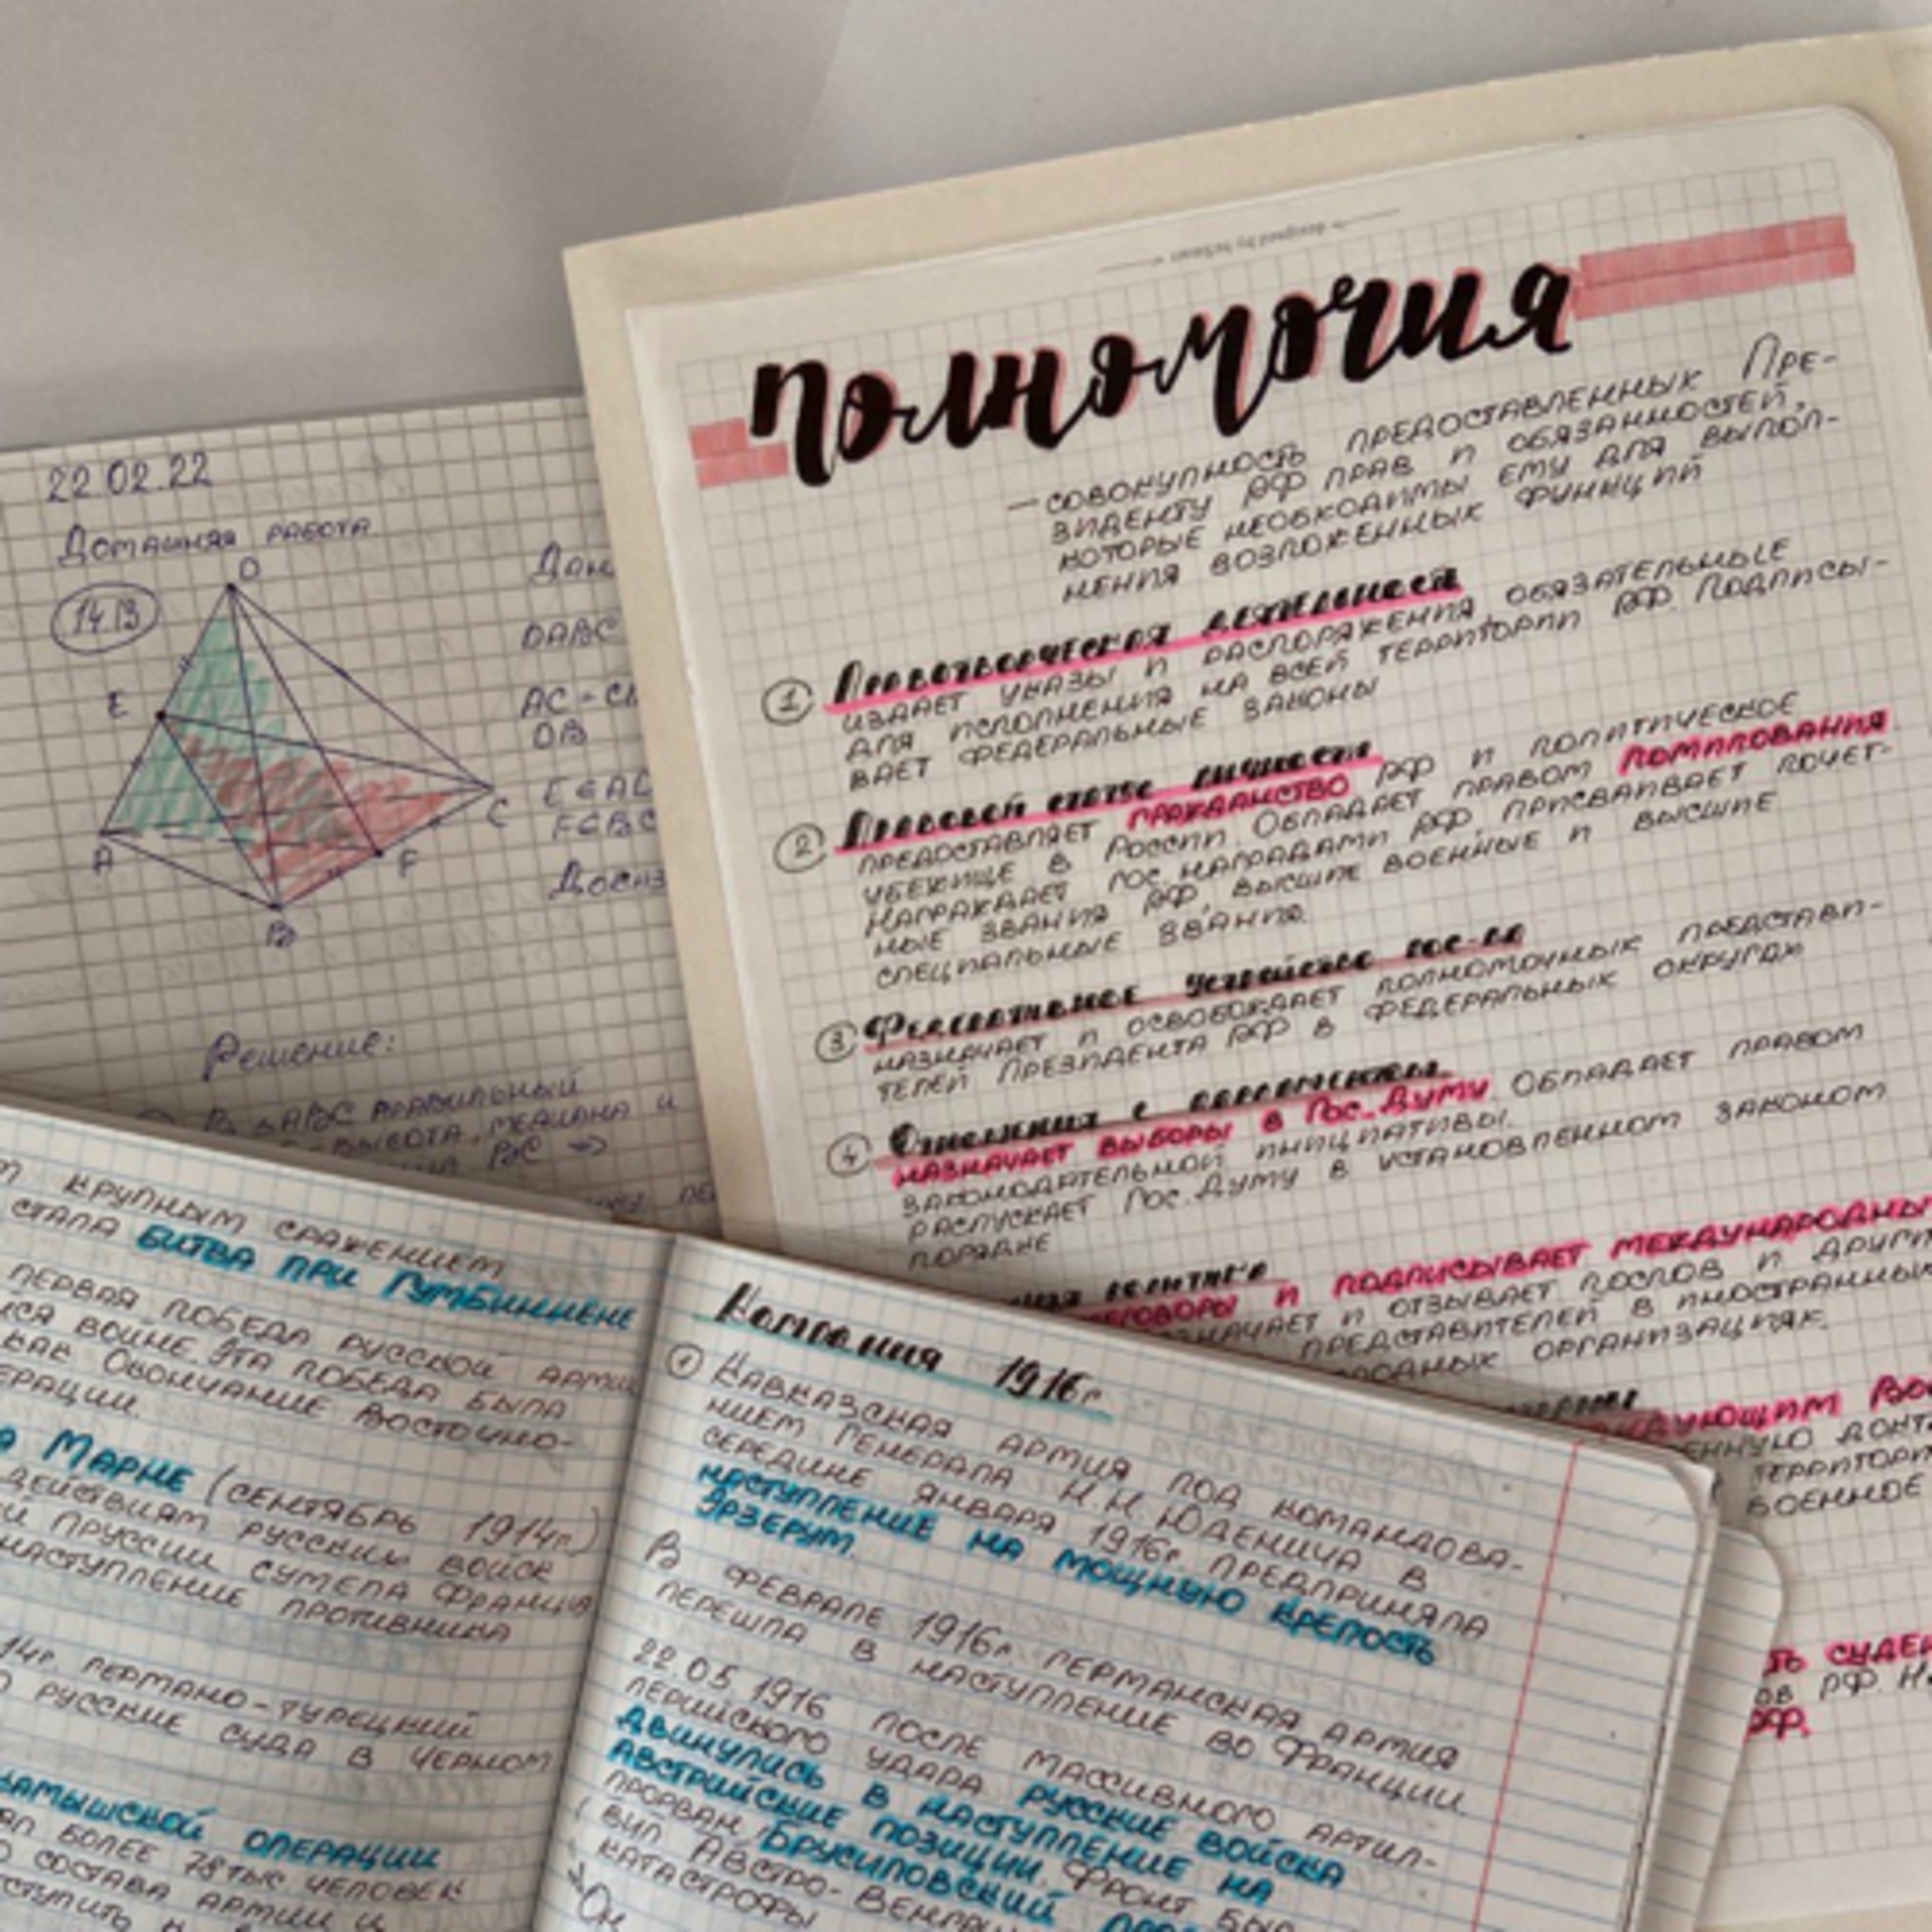 22.02.22
Домашняя работа
14.13
O
E
A
B
C
F
DABC
AC = C
OB
E ∈ A
F ∈ BC
Решение:
В △ABC правильный
высота, медиана и
BC ⇒
designed by
Полномочия
— совокупность предоставленных Пре-
зиденту РФ прав и обязанностей,
которые необходимы ему для выпол-
нения возложенных функций
① Правотворческая деятельность
издает указы и распоряжения, обязательные
для исполнения на всей территории РФ. Подписы-
вает федеральные законы
② Правовой статус личности
предоставляет гражданство РФ и политическое
убежище в России. Обладает правом помилования
Награждает гос. наградами РФ, присваивает почет-
ные звания РФ, высшие военные и высшие
специальные звания.
③ Федеративное устройство гос-ва
назначает и освобождает полномочных представи-
телей Президента РФ в федеральных округах
④ Отношения с парламентом
назначает выборы в Гос. Думу. Обладает правом
законодательной инициативы.
распускает Гос. Думу в установленном законом
порядке
политика
и подписывает международны
и отзывает послов и други
представителей в иностранных
организациях.
военное
РФ. Н
РФ.
крупным сражением
стала битва при Гумбиннене
первая победа русской армии
войне. Эта победа была
как Окончание Восточно-
Марне (сентябрь 1914г.)
действиям русских войск
Пруссии сумела Франция
наступление противника
14г. германо-турецкий
русские суда в Черном
операции
более 78 тыс человек
состава армии и
Кампания 1916г.
① Кавказская армия под командова-
нием Генерала Н.Н. Юденича в
середине января 1916г. предприняла
наступление на мощную крепость
Эрзерум.
В феврале 1916г. германская армия
перешла в наступление во Франции
22.05.1916 после массивного артил-
лерийского удара русские войска
двинулись в наступление на
Австрийские позиции. Фронт был
прорван. Брусиловский
Австро-Венгри
катастрофы
Он